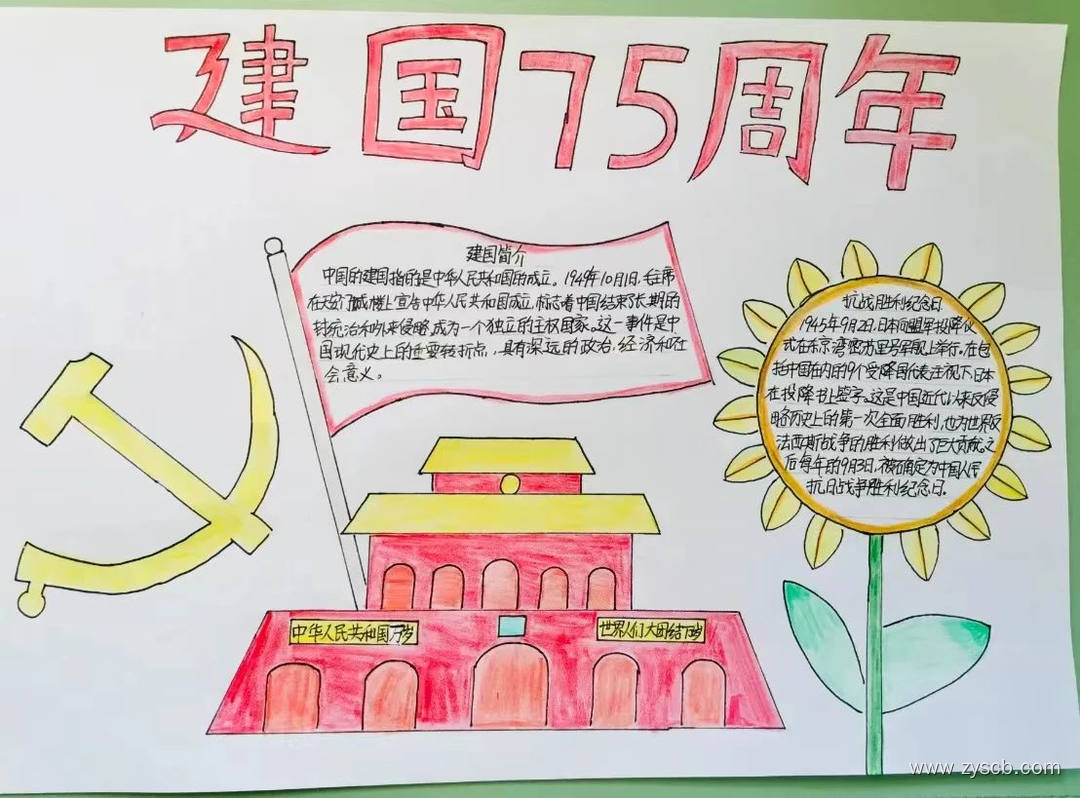 建国75周年
建国简介
中国的建国指的是中华人民共和国的成立。1949年10月1日,毛主席
在天安门城楼上宣告中华人民共和国成立,标志着中国结束了长期的
封统治和外来侵略,成为一个独立的主权国家。这一事件是中
国现代史上的重要转折点,具有深远的政治,经济和社
会意义。
抗战胜利纪念日
1945年9月2日,日本向盟军投降仪
式在东京湾密苏里号军舰上举行。在包
括中国在内的9个受降国代表注视下,日本
在投降书上签字。这是中国近代以来反侵
略历史上的第一次全面胜利,也为世界反
法西斯战争的胜利做出了巨大贡献。之
后每年的9月3日,被确定为中国人民
抗日战争胜利纪念日。
中华人民共和国万岁
世界人们大团结万岁
www.zyscb.com